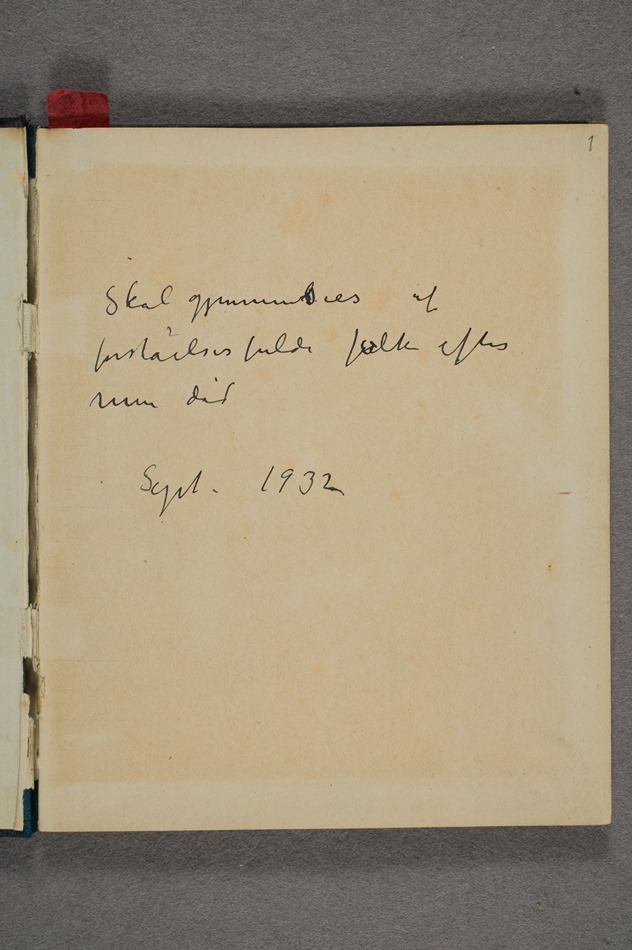 1
Skal gjennemsees af
forståelsesfulde folk efter
min död
Sept. 1932